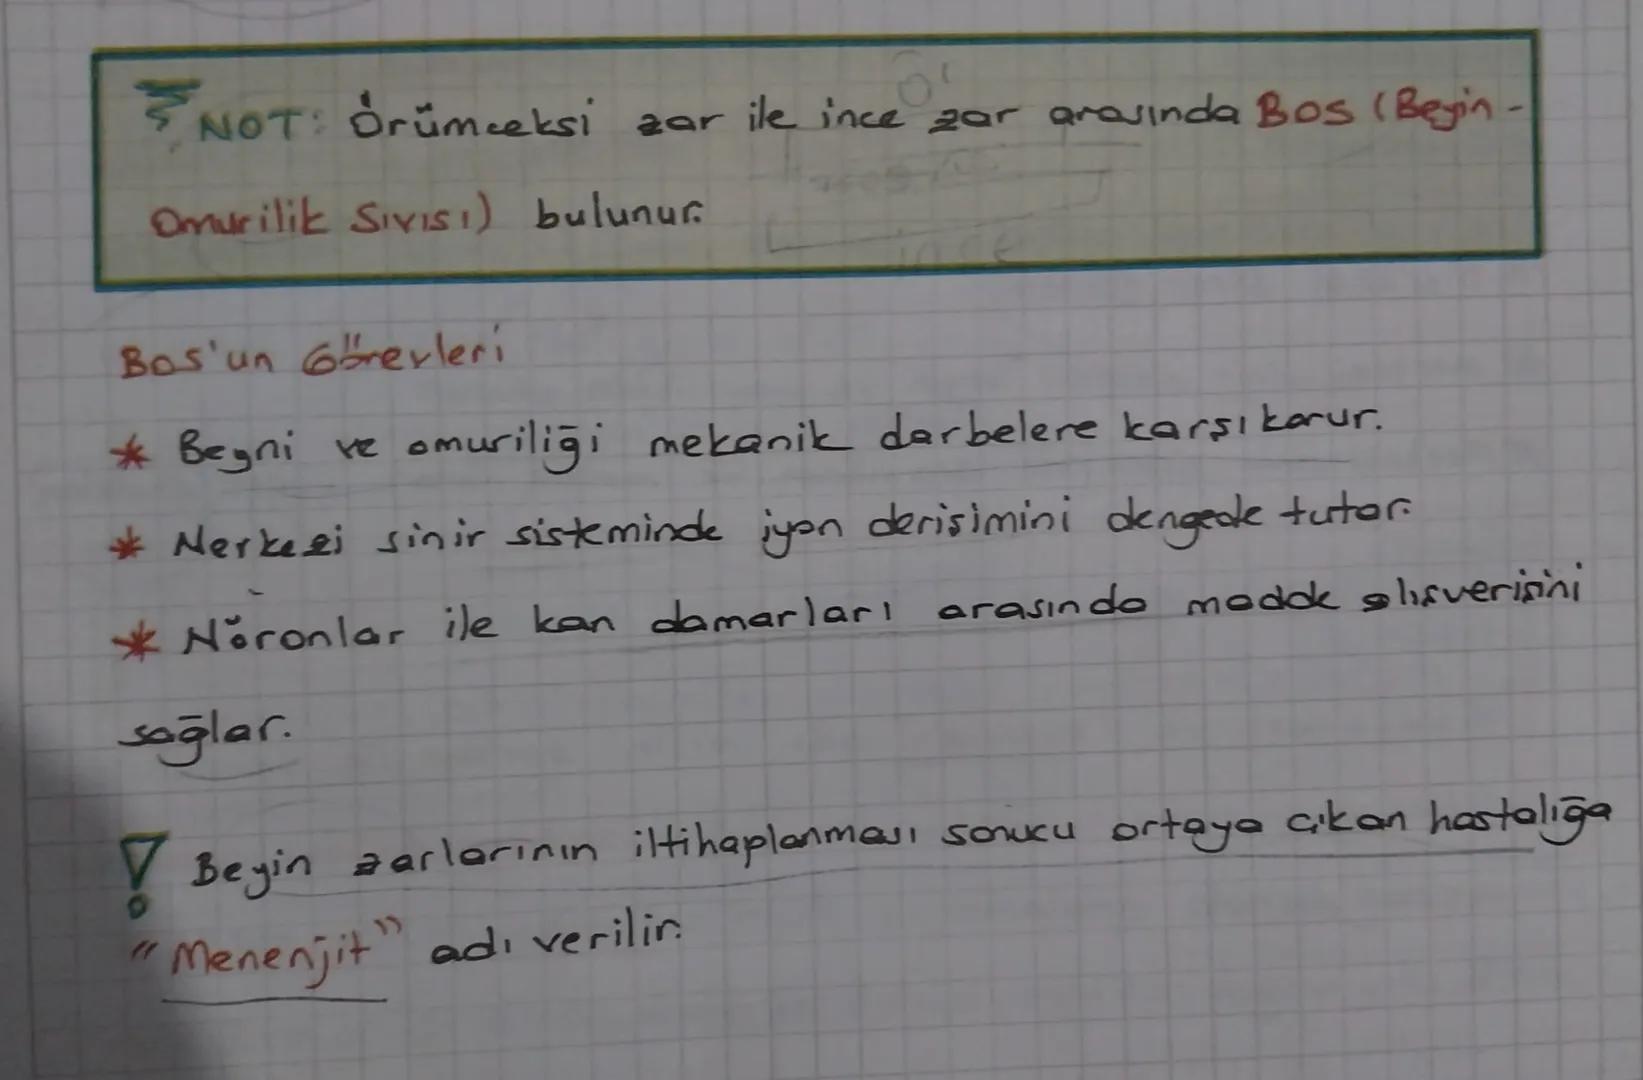 NOT: Örümceksi zar ile ince zar arasında BOS (Beyin-
Omurilik Sıvısı) bulunur.
Bos'un Görevleri
* Beyni ve omuriliği mekanik darbelere karşı korur.
* Merkezi sinir sisteminde iyon derişimini dengede tutar.
* Nöronlar ile kan damarları arasında madde alışverişini
sağlar.
! Beyin zarlarının iltihaplanması sonucu ortaya çıkan hastalığa
"Menenjit" adı verilir.